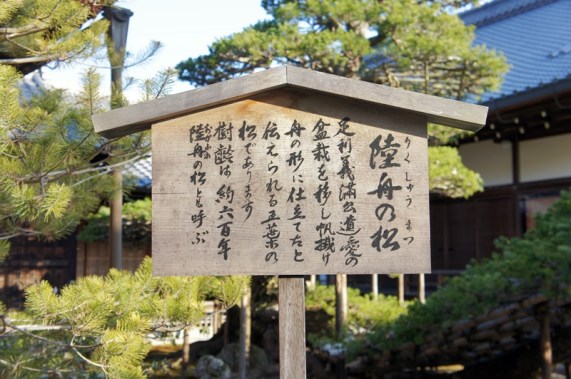 陸舟の松
りくしゅう まつ
足利義満公遺愛の
盆栽を移し帆掛け
舟の形に仕立てたと
伝えられる五葉の
松であります
樹齢は約六百年
陸船の松とも呼ぶ